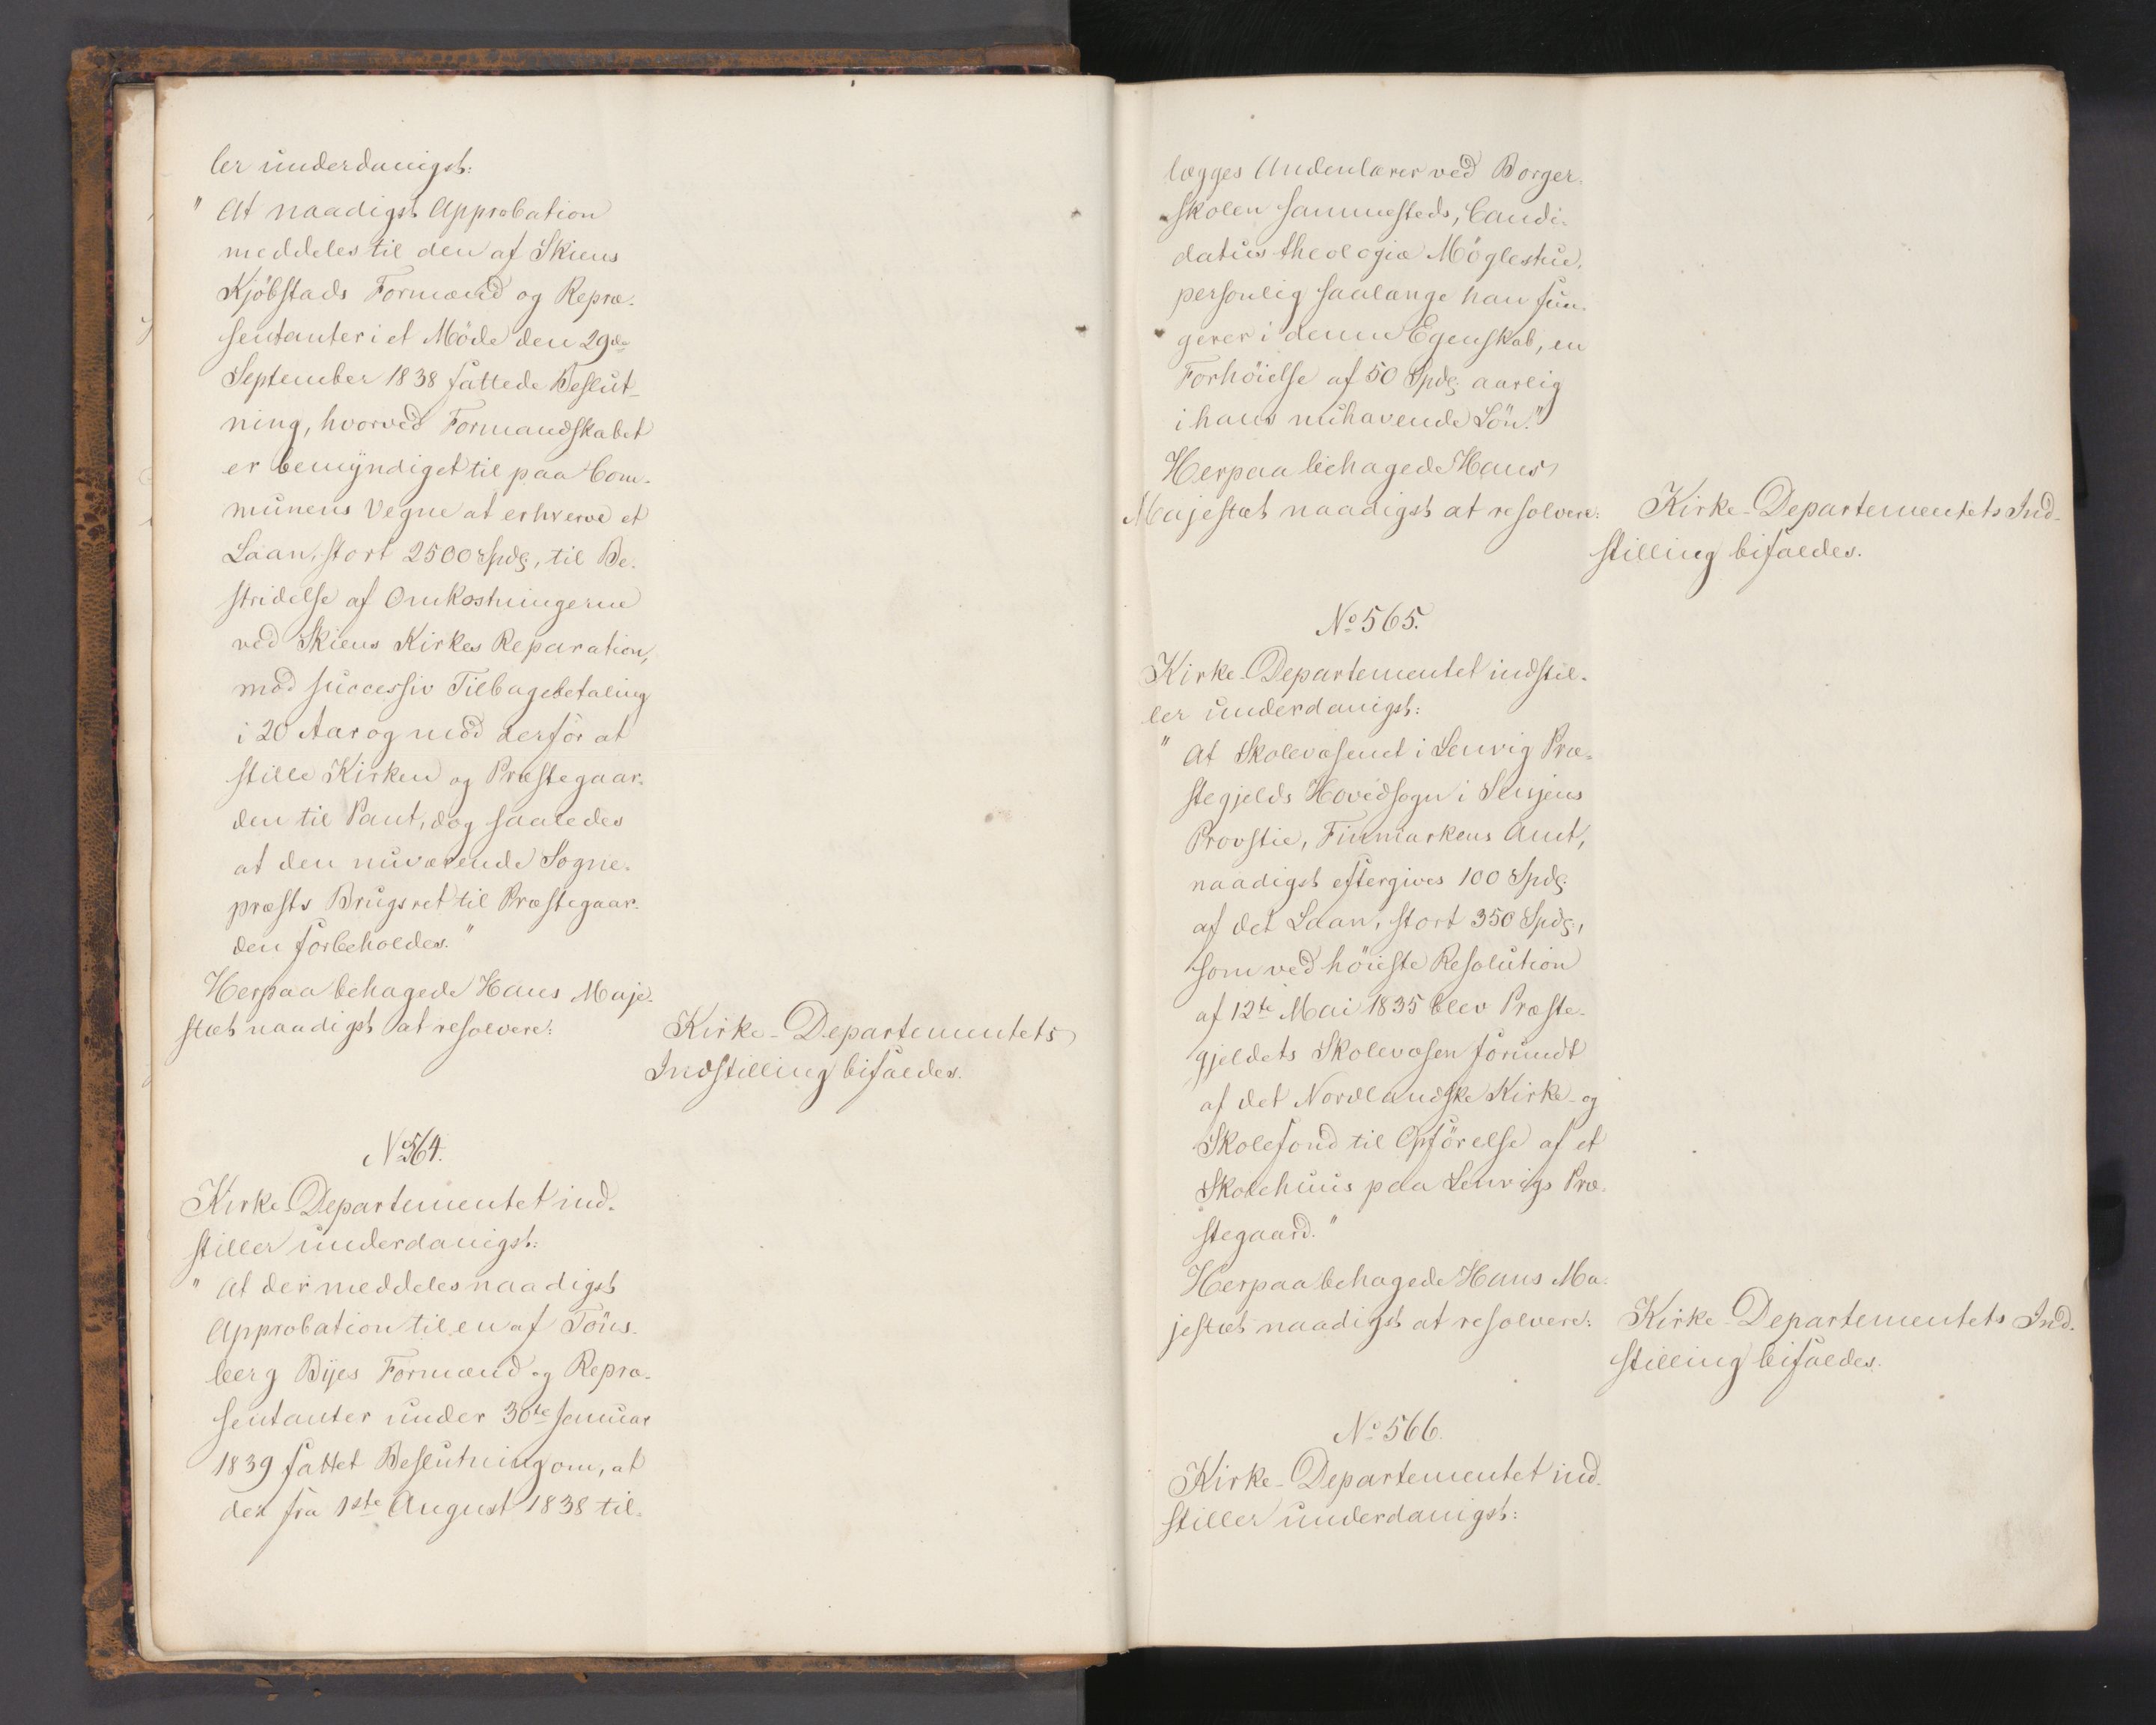 ler underdanigst:
" At naadigst Approbation
meddeles til den af Skiens
Kjöbstads Formænd og Repræ-
sentanter i et Möde den 29de
September 1838 fattede Beslut-
ning, hvorved Formandskabet
er bemyndiget til paa Com-
munens Vegne at erhverve et
Laan, stort 2500 Spdlr, til Be-
stridelse af Omkostningerne
ved Skiens Kirkes Reparation,
mod successiv Tilbagebetaling
i 20 Aar og mod derfor at
stille Kirken og Præstegaar-
den til Pant, dog saaledes
at den nuværende Sogne-
præsts Brugsret til Præstegaar-
den forbeholdes."
Herpaa behagede Hans Maje-
stæt naadigst at resolvere:
Kirke-Departementets
Indstilling bifaldes.
No 564.
Kirke-Departementet ind-
stiller underdanigst:
" At der meddeles naadigst
Approbation til en af Töns-
berg Byes Formænd og Repræ-
sentanter under 30te Januar
1839 fattet Beslutning om, at
der fra 1ste August 1838 til-
lægges Andenlærer ved Borger-
skolen sammesteds, Candi-
datus theologiæ Möglestue,
personlig saalænge han fun-
gerer i denne Egenskab, en
Forhöielse af 50 Spdlr aarlig
i hans nuhavende Lön."
Herpaa behagede Hans
Majestæt naadigst at resolvere:
Kirke-Departementets Ind-
stilling bifaldes.
No 565.
Kirke-Departementet indstil-
ler underdanigst:
" At Skolevæsenet i Lenvig Præ-
stegjelds Hovedsogn i Senjens
Provstie, Finmarkens Amt,
naadigst eftergives 100 Spdlr
af det Laan, stort 350 Spdlr,
som ved höieste Resolution
af 12te Mai 1835 blev Præste-
gjeldets Skolevæsen forundt
af det Nordlandske Kirke- og
Skolefond til Opförelse af et
Skolehuus paa Lenvigs Præ-
stegaard."
Herpaa behagede Hans Ma-
jestæt naadigst at resolvere:
Kirke-Departementets Ind-
stilling bifaldes.
No 566.
Kirke-Departementet ind-
stiller underdanigst: